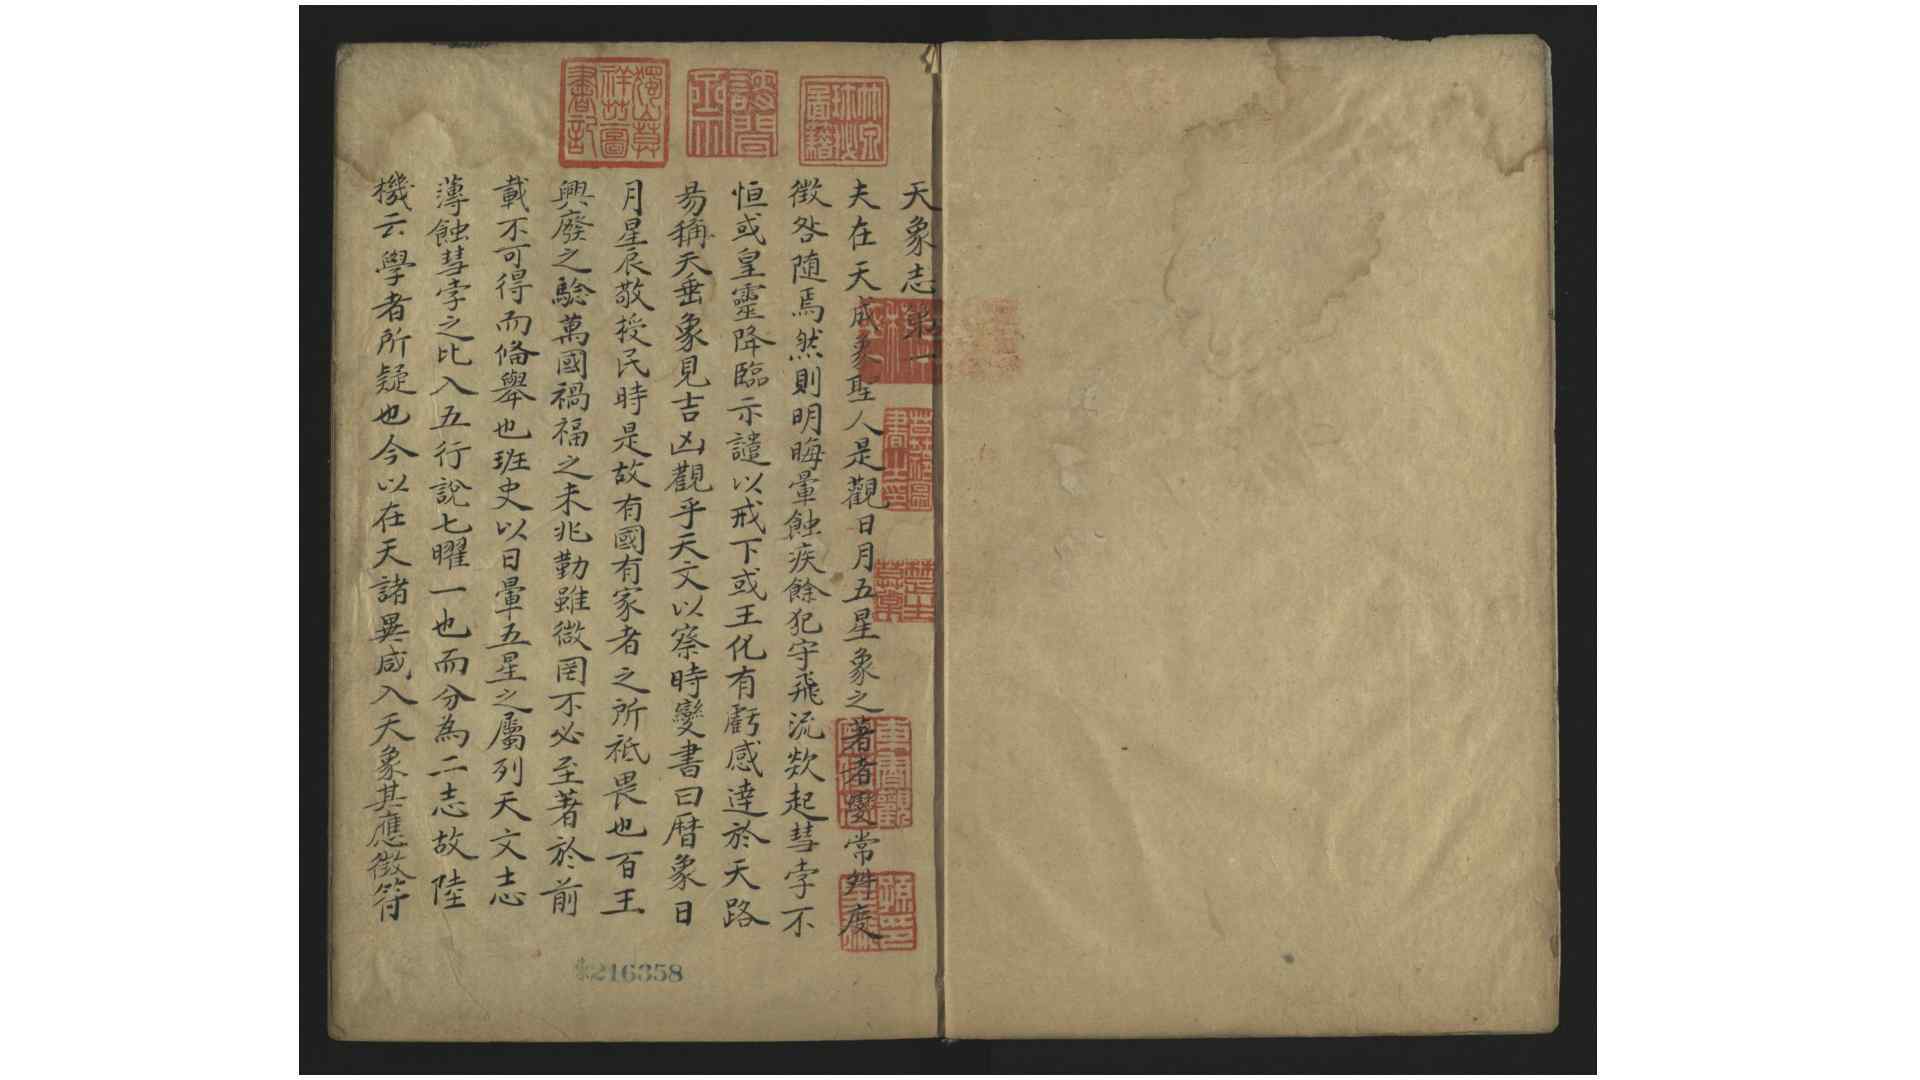 竹泉珍秘圖籍
獨山莫祥芝圖書記
天象志第一
夫在天成象聖人是觀日月五星象之著者變常舛度
徵咎随焉然則明晦暈蝕疾餘犯守飛流欻起彗孛不
恒或皇靈降臨示譴以戒下或王化有虧感逹於天路
易稱天垂象見吉凶觀乎天文以察時變書曰曆象日
月星辰敬授民時是故有國有家者之所祗畏也百王
興廢之驗萬國禍福之未兆勤雖微罔不必至著於前
載不可得而俻舉也班史以日暈五星之屬列天文志
薄蝕彗孛之比入五行說七曜一也而分為二志故陸
機云學者所疑也今以在天諸異咸入天象其應徵符
莫友芝圖書印
216358